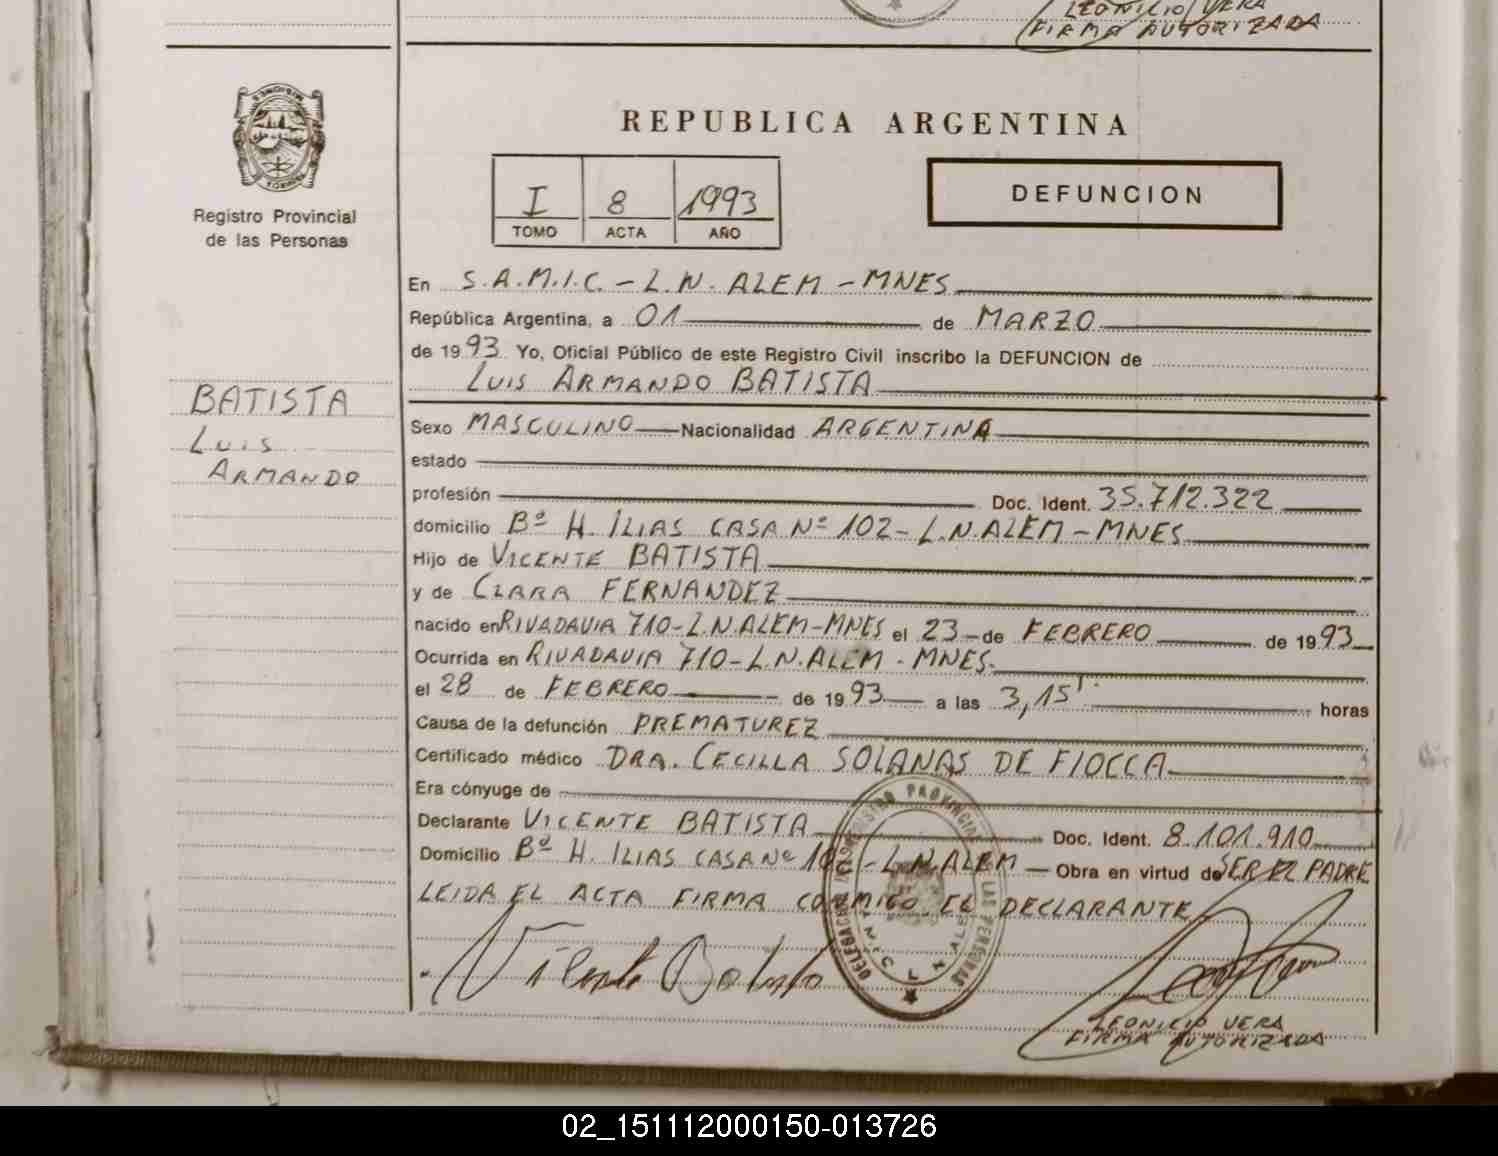 LEONICIO VERA
FIRMA AUTORIZADA
MISIONES
Registro Provincial
de las Personas
REPUBLICA ARGENTINA
I 8 1993
TOMO ACTA AÑO
DEFUNCION
En S.A.M.I.C. - L.N. ALEM - MNES
República Argentina, a 01 de MARZO
de 1993 Yo, Oficial Público de este Registro Civil inscribo la DEFUNCION de
LUIS ARMANDO BATISTA
BATISTA
LUIS
ARMANDO
Sexo MASCULINO Nacionalidad ARGENTINA
estado
profesión Doc. Ident. 35.712.322
domicilio Bº H. ILIAS CASA Nº 102 - L.N. ALEM - MNES
Hijo de VICENTE BATISTA
y de CLARA FERNANDEZ
nacido en RIVADAVIA 710 - L.N. ALEM - MNES el 23 de FEBRERO de 1993
Ocurrida en RIVADAVIA 710 - L.N. ALEM - MNES.
el 28 de FEBRERO de 1993 a las 3,15' horas
Causa de la defunción PREMATUREZ
Certificado médico DRA. CECILLA SOLANAS DE FIOCCA
Era cónyuge de
Declarante VICENTE BATISTA Doc. Ident. 8.101.910
Domicilio Bº H. ILIAS CASA Nº 10 - L.N. ALEM Obra en virtud de SER EL PADRE
LEIDA EL ACTA FIRMA CONMIGO EL DECLARANTE
REGISTRO PROVINCIAL DE LAS PERSONAS
Vicente Batista
LEONICIO VERA
FIRMA AUTORIZADA
02_151112000150-013726